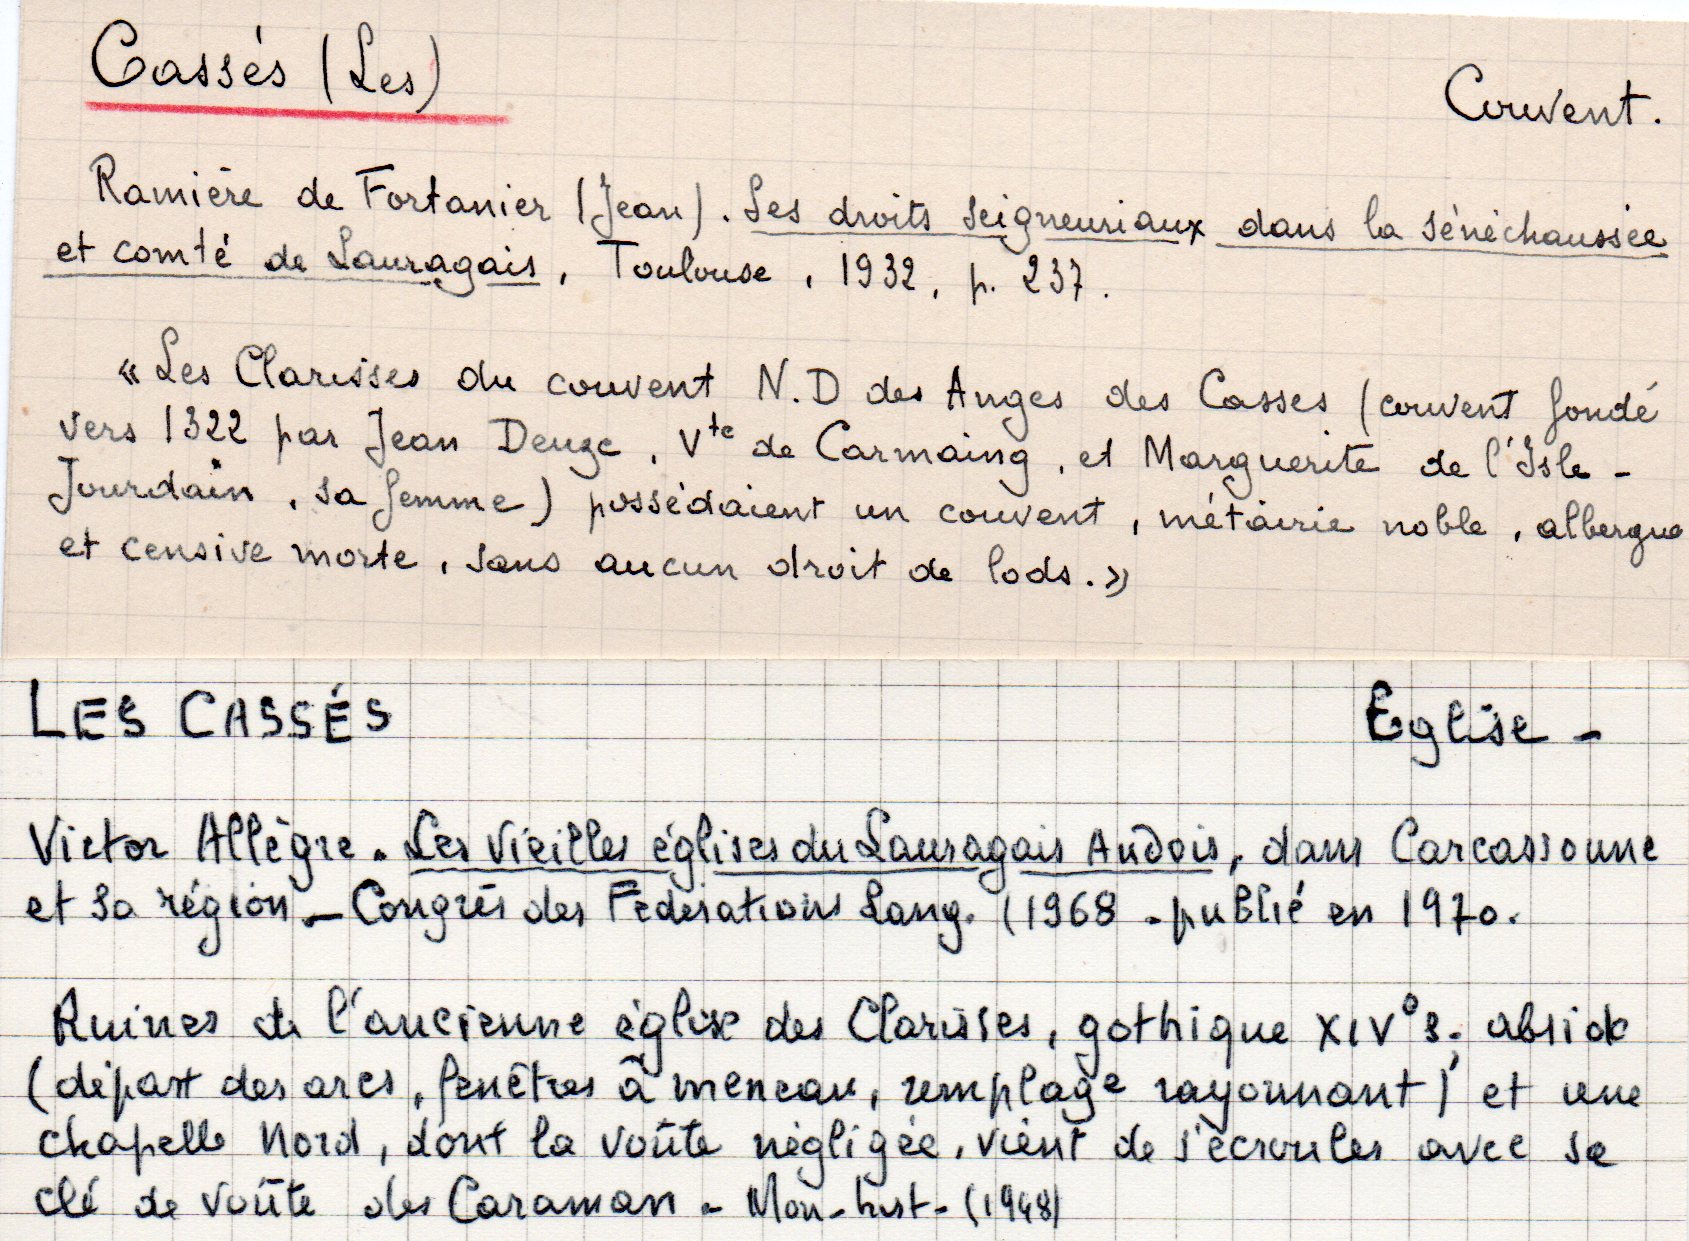 Cassés (Les)
Couvent.
Ramière de Fortanier (Jean). Les droits seigneuriaux dans la sénéchaussée
et comté de Lauragais, Toulouse, 1932, p. 237.
« Les Clarisses du couvent N.D des Anges des Casses (couvent fondé
vers 1322 par Jean Deuze, Vte de Carmaing, et Marguerite de l'Isle-
Jourdain, sa femme) possédaient un couvent, métairie noble, albergue
et censive morte, sans aucun droit de lods. »
LES CASSÉS
Eglise -
Victor Allègre. Les vieilles églises du Lauragais Audois, dans Carcassonne
et sa région - Congrès des Fédérations Lang. (1968 - publié en 1970.
Ruines de l'ancienne église des Clarisses, gothique XIV° s; abside
(départ des arcs, fenêtres à meneau, remplage rayonnant) et une
chapelle Nord, dont la voûte négligée, vient de s'écrouler avec sa
clé de voûte des Caraman - Mon-hist- (1948)